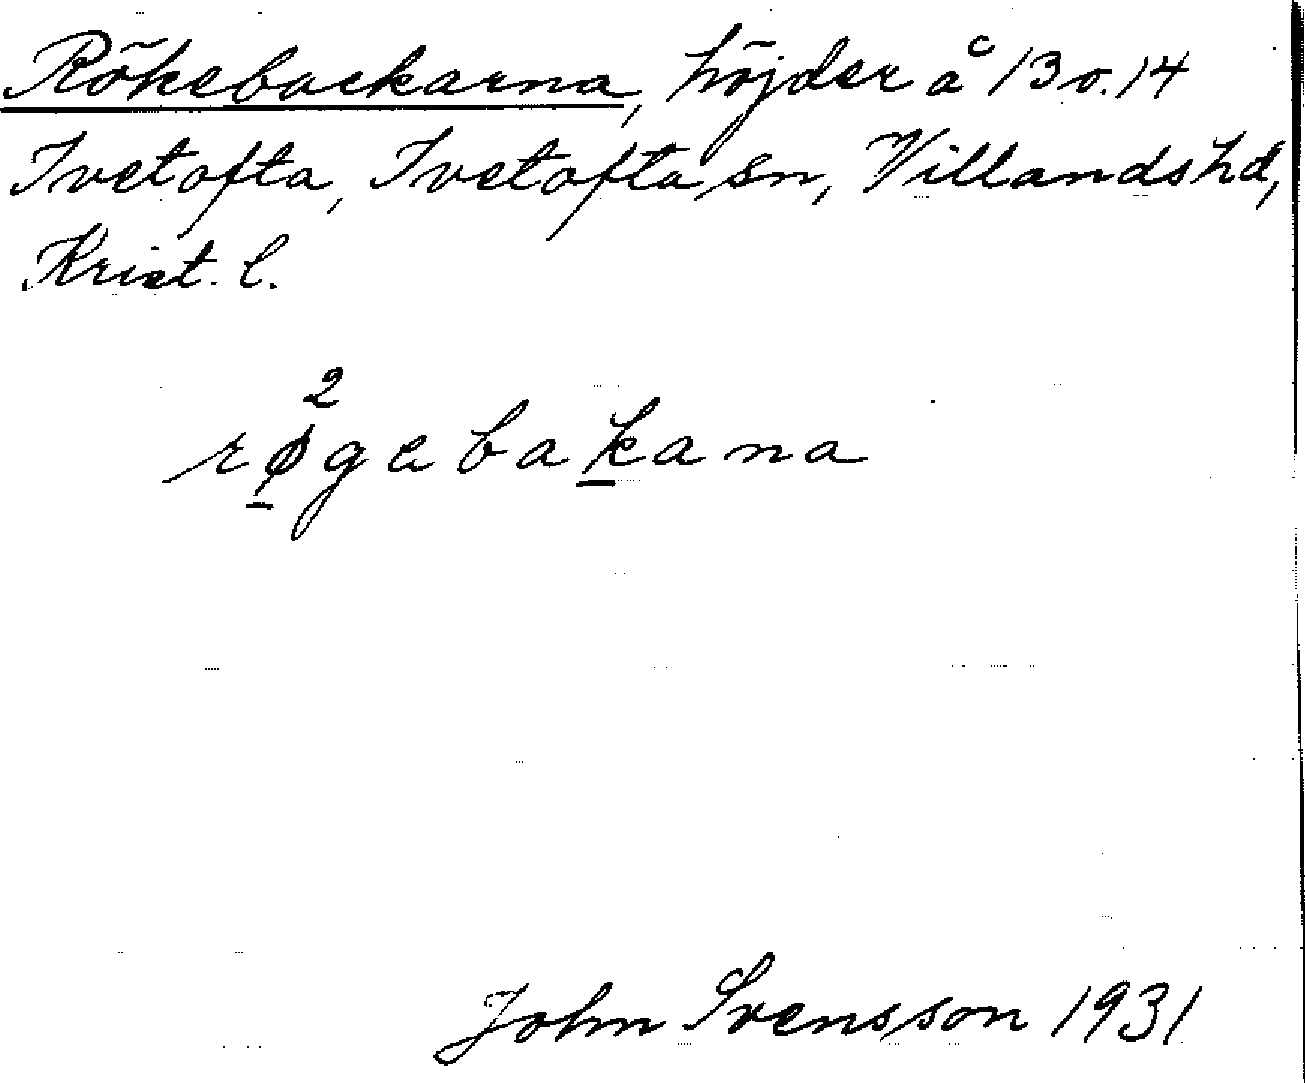 Rökebackarna, höjder å 13 o. 14
Ivetofta, Ivetofta sn, Villands hd,
Krist. l.
2
røgebakana
John Svensson 1931